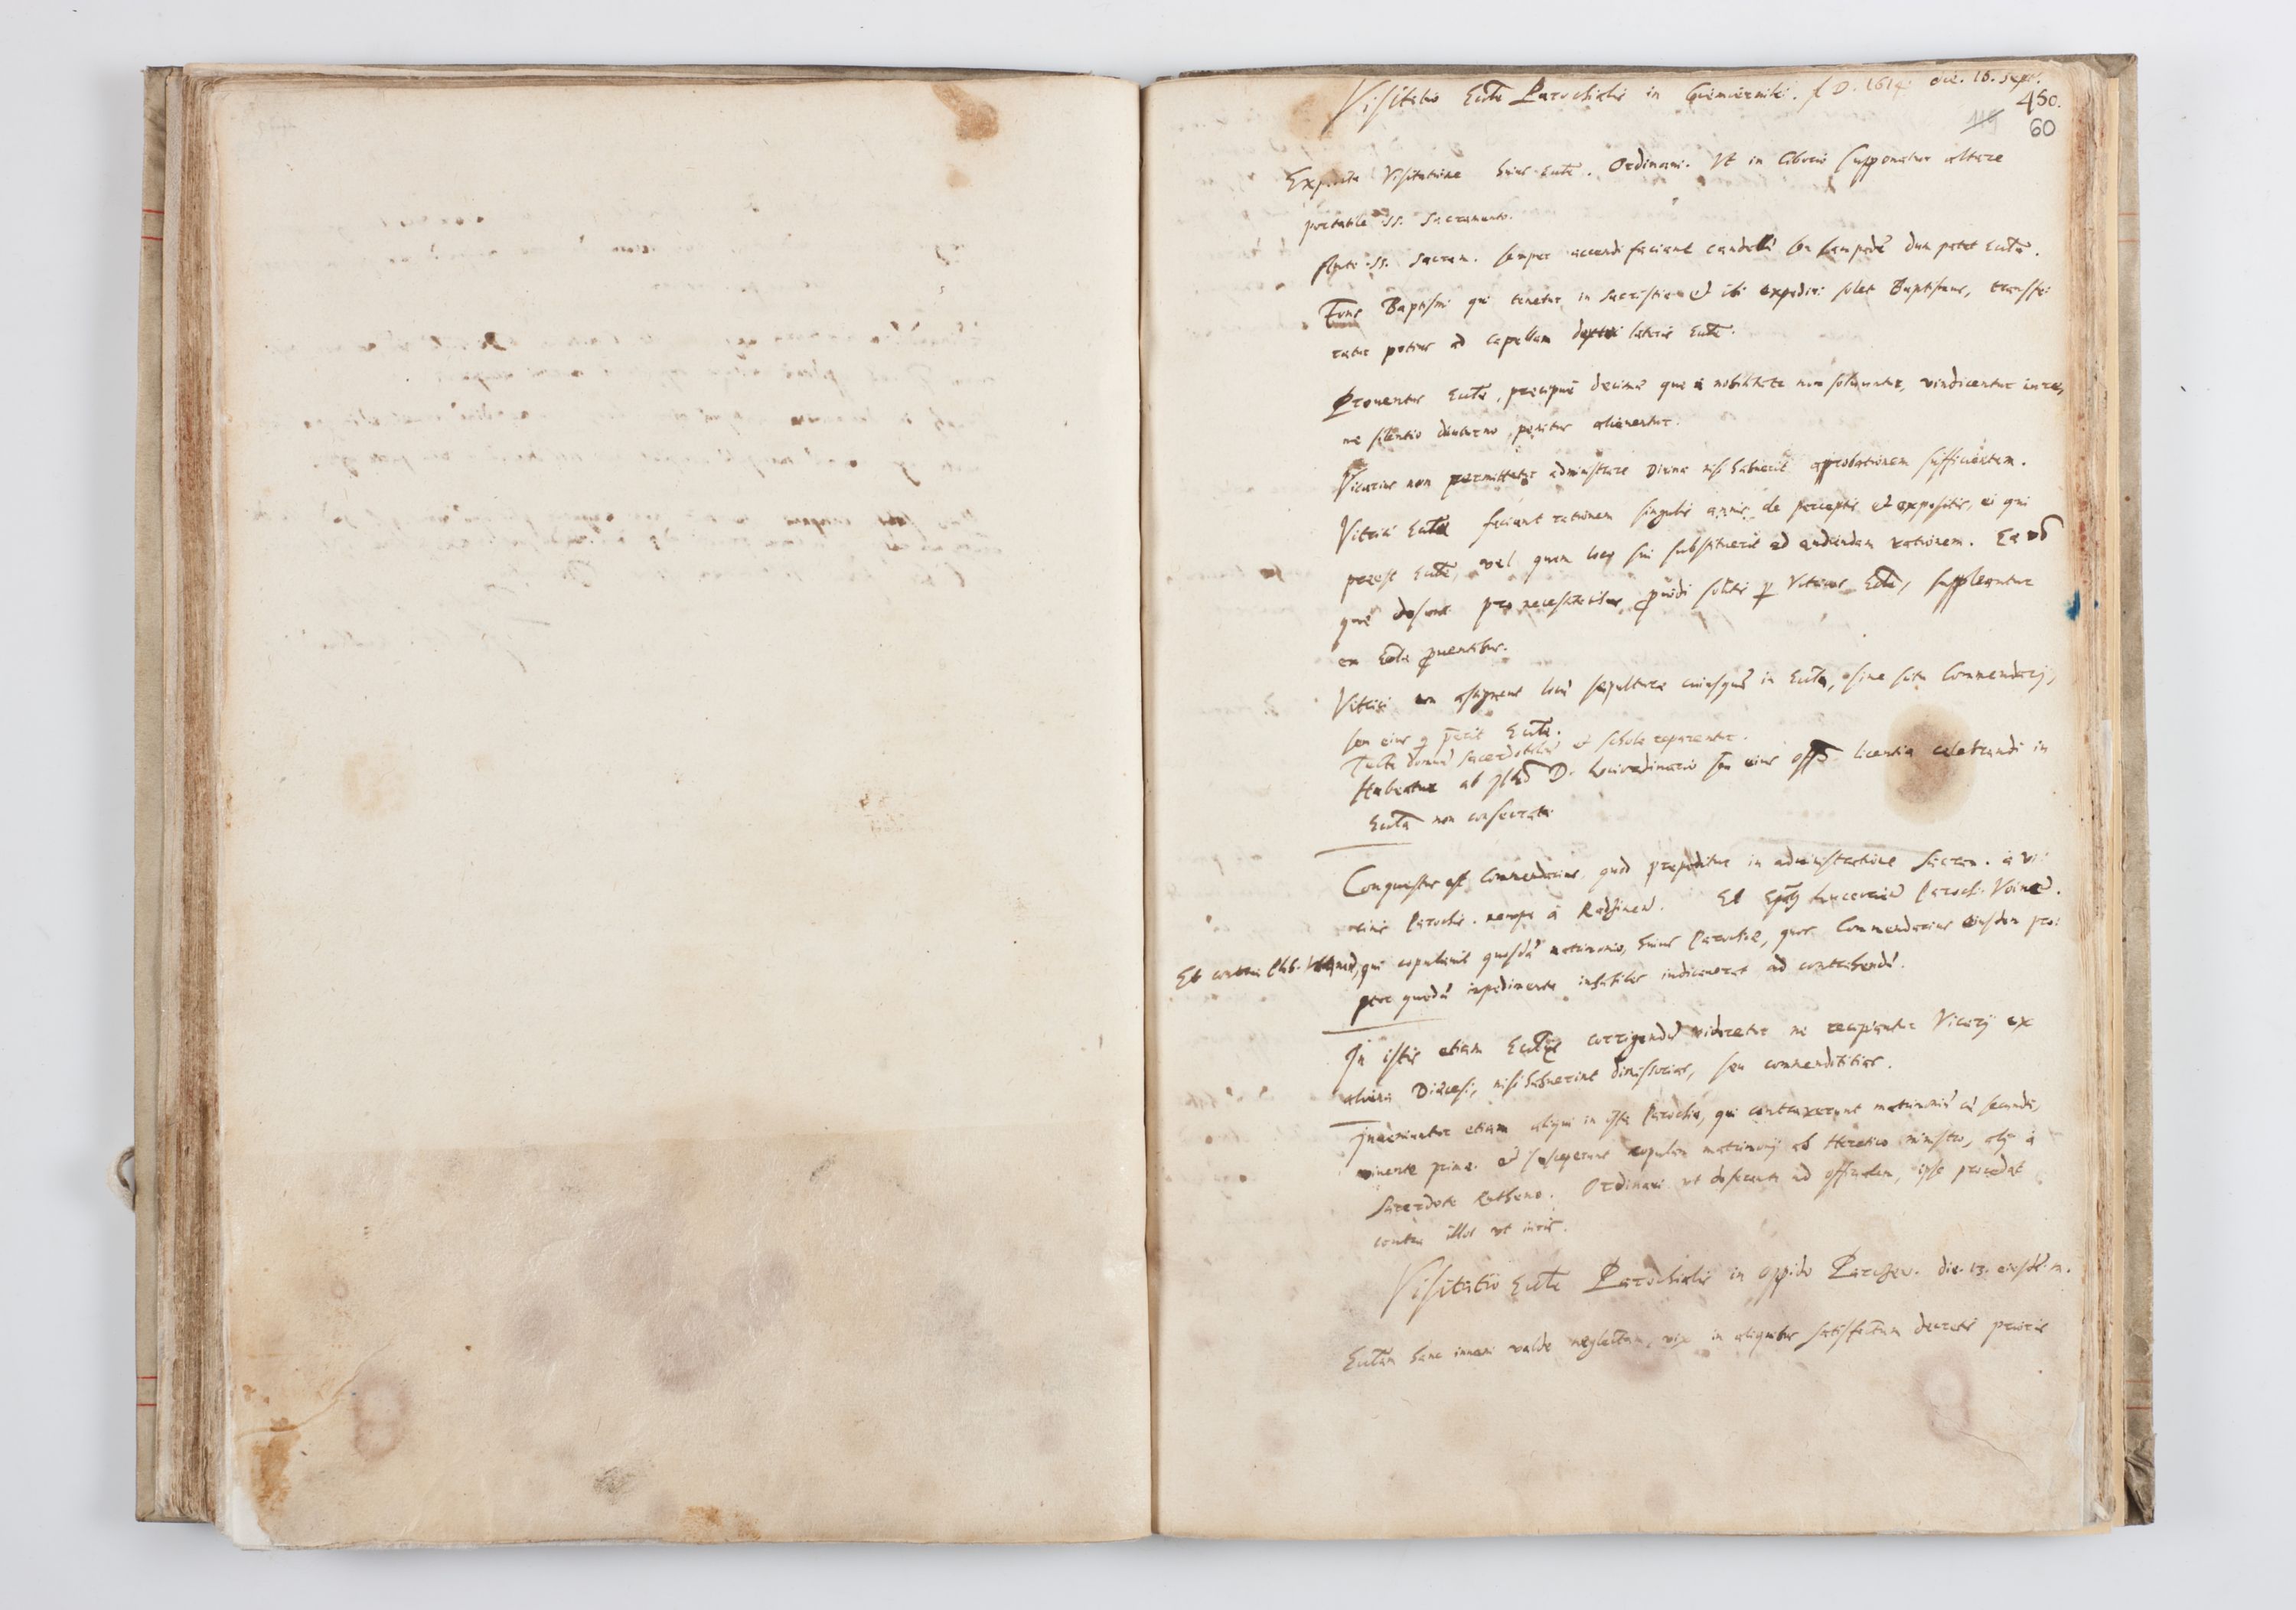 Visitatio Eccłæ Parochialis in Czemierniki. A D. 1614. die. 10. Sept.
450.
119
60
Expedita Visitatione huius Eccłæ. Ordinavi. Vt in Ciborio supponatur altare
portatile SS. Sacramento.
Ante SS. Sacram. semper accendi faciant candelā seu lampadē dum patet Eccła.
Fons Baptismi qui tenetur in sacristia et ibi expediri solet Baptismus, transfe
ratur potius ad capellam dextri lateris Eccłæ.
Prouentus Eccłæ, præcipuè decimæ quæ à nobilitate non soluuntur, vindicentur iure,
ne silentio diuturno, penitus alienentur.
Vicarius non permittatur administrare Diuina nisi habuerit approbationem sufficientem.
Vitrici Eccłæ faciant rationem singulis annis, de perceptis et expositis, ei qui
præest Eccłæ, vel quem loco sui substituerit ad audiendam rationem. Ea vō
quæ desunt pro necessitatibus prouideri solitis p Vitricos Eccłæ, suppleantur
ex Eccłæ prouentibus.
Vitrici non assignent locū sepulturæ cuiusquā in Eccła, sine scitu Commendarij,
seu eius q præerit Eccłæ.
Tecta domus sacerdotalis et schola reparentur.
Habeatur ab Illmo D. Loci ordinario seu eius offō licentia celebrandi in
Eccła non consecrata.
Conquestus est Commendarius, quod præpeditur in administratione Sacram. à vi
cinis Parochis. nempe à Radzinen. Et Epātg Luceorien Paroch. Voinen.
Et contra qui copulauit quosdā matrimonio, huius Parochiæ, quos Commendarius eiusdem pro
pter quædā impedimenta inhabiles iudicauerat ad contrahendū.
In istis etiam Eccłijs corrigendū videretur ne recipiantur Vicarij ex
aliena Diœcesi, nisi habuerint dimissorias, seu commendititias.
Inueniuntur etiam aliqui in ista Parochia, qui contraxerunt matrimoniū cū secunda,
viuente prima. et susceperunt copulam matrimonij ab Heretico ministro, alij à
Sacerdote Rutheno. Ordinaui ut deferantur ad officialem, ipse procedat
contra illos ut iuris.
Visitatio Eccłæ Parochialis in oppido Parczew. die. 13. eiusdē m.
Eccłam hanc inueni valde neglectam, vix in aliquibus satisfactum decretis prioris